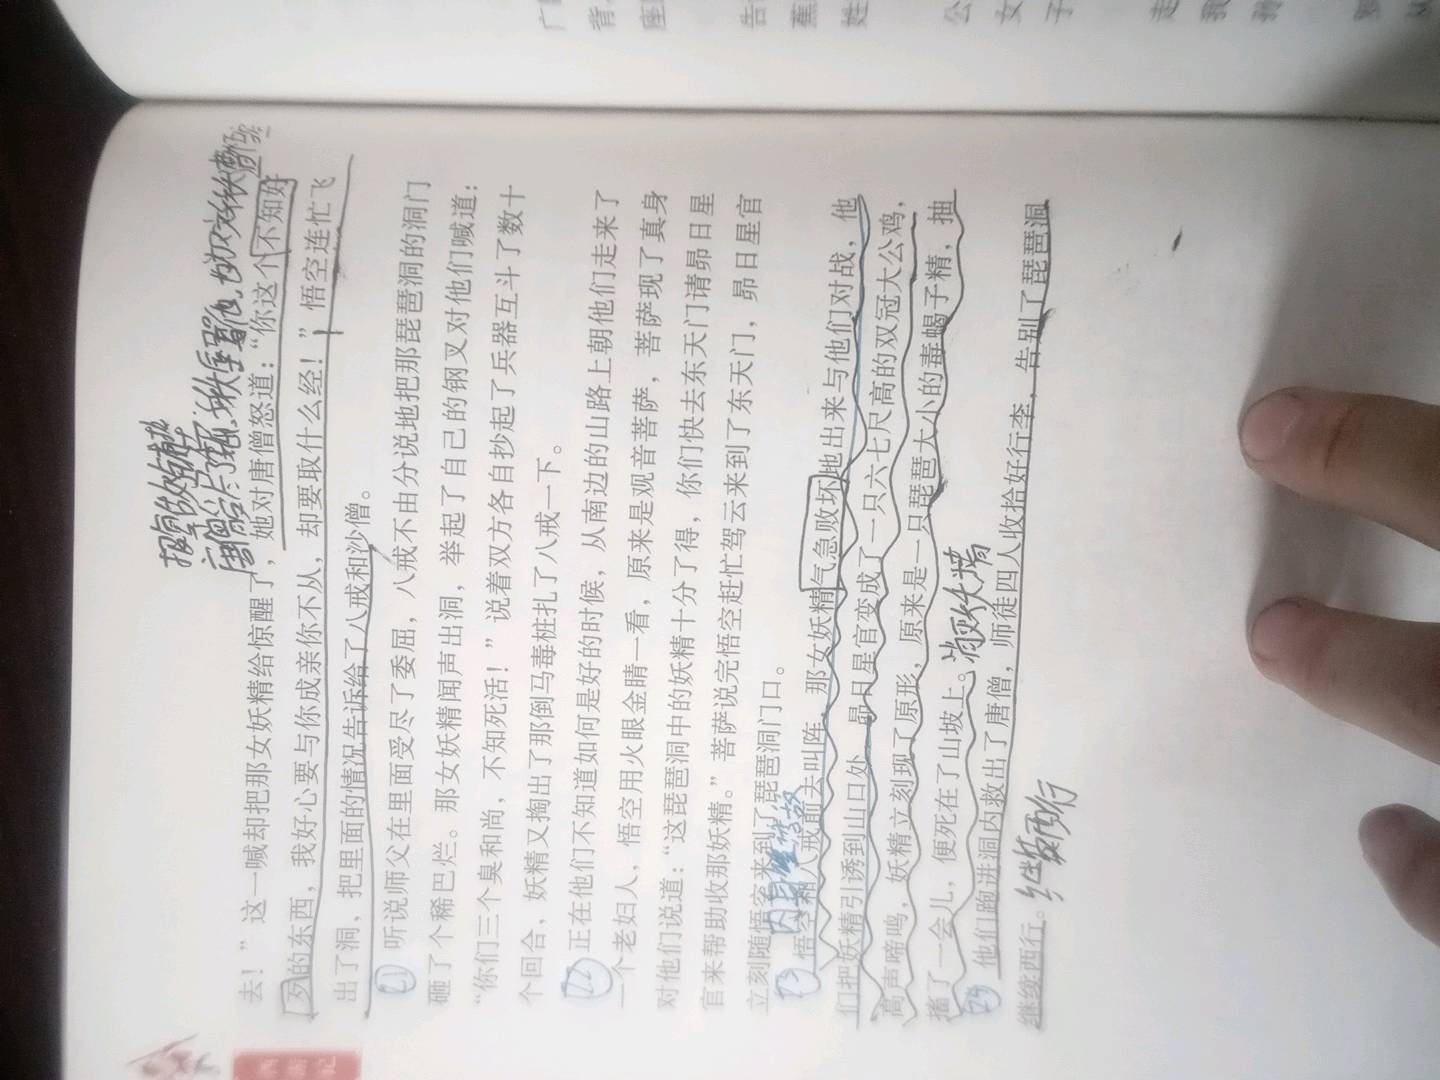 去！”这一喊却把那女妖精给惊醒了，她对唐僧怒道：“你这个不知好
歹的东西，我好心要与你成亲你不从，却要取什么经！”悟空连忙飞
出了洞，把里面的情况告诉给了八戒和沙僧。
21 听说师父在里面受尽了委屈，八戒不由分说地把那琵琶洞的洞门
砸了个稀巴烂。那女妖精闻声出洞，举起了自己的钢叉对他们喊道：
“你们三个臭和尚，不知死活！”说着双方各自抄起了兵器互斗了数十
个回合，妖精又掏出了那倒马毒桩扎了八戒一下。
22 正在他们不知道如何是好的时候，从南边的山路上朝他们走来了
一个老妇人，悟空用火眼金睛一看，原来是观音菩萨，菩萨现了真身
对他们说道：“这琵琶洞中的妖精十分了得，你们快去东天门请昴日星
官来帮助收那妖精。”菩萨说完悟空赶忙驾云来到了东天门，昴日星官
立刻随悟空来到了琵琶洞门口。
23 悟空和八戒前去叫阵，那女妖精气急败坏地出来与他们对战，他
们把妖精引诱到山口处，昴日星官变成了一只六七尺高的双冠大公鸡，
高声啼鸣，妖精立刻现了原形，原来是一只琵琶大小的毒蝎子精，抽
搐了一会儿，便死在了山坡上。
他们跑进洞内救出了唐僧，师徒四人收拾好行李，告别了琵琶洞
继续西行。继续西行